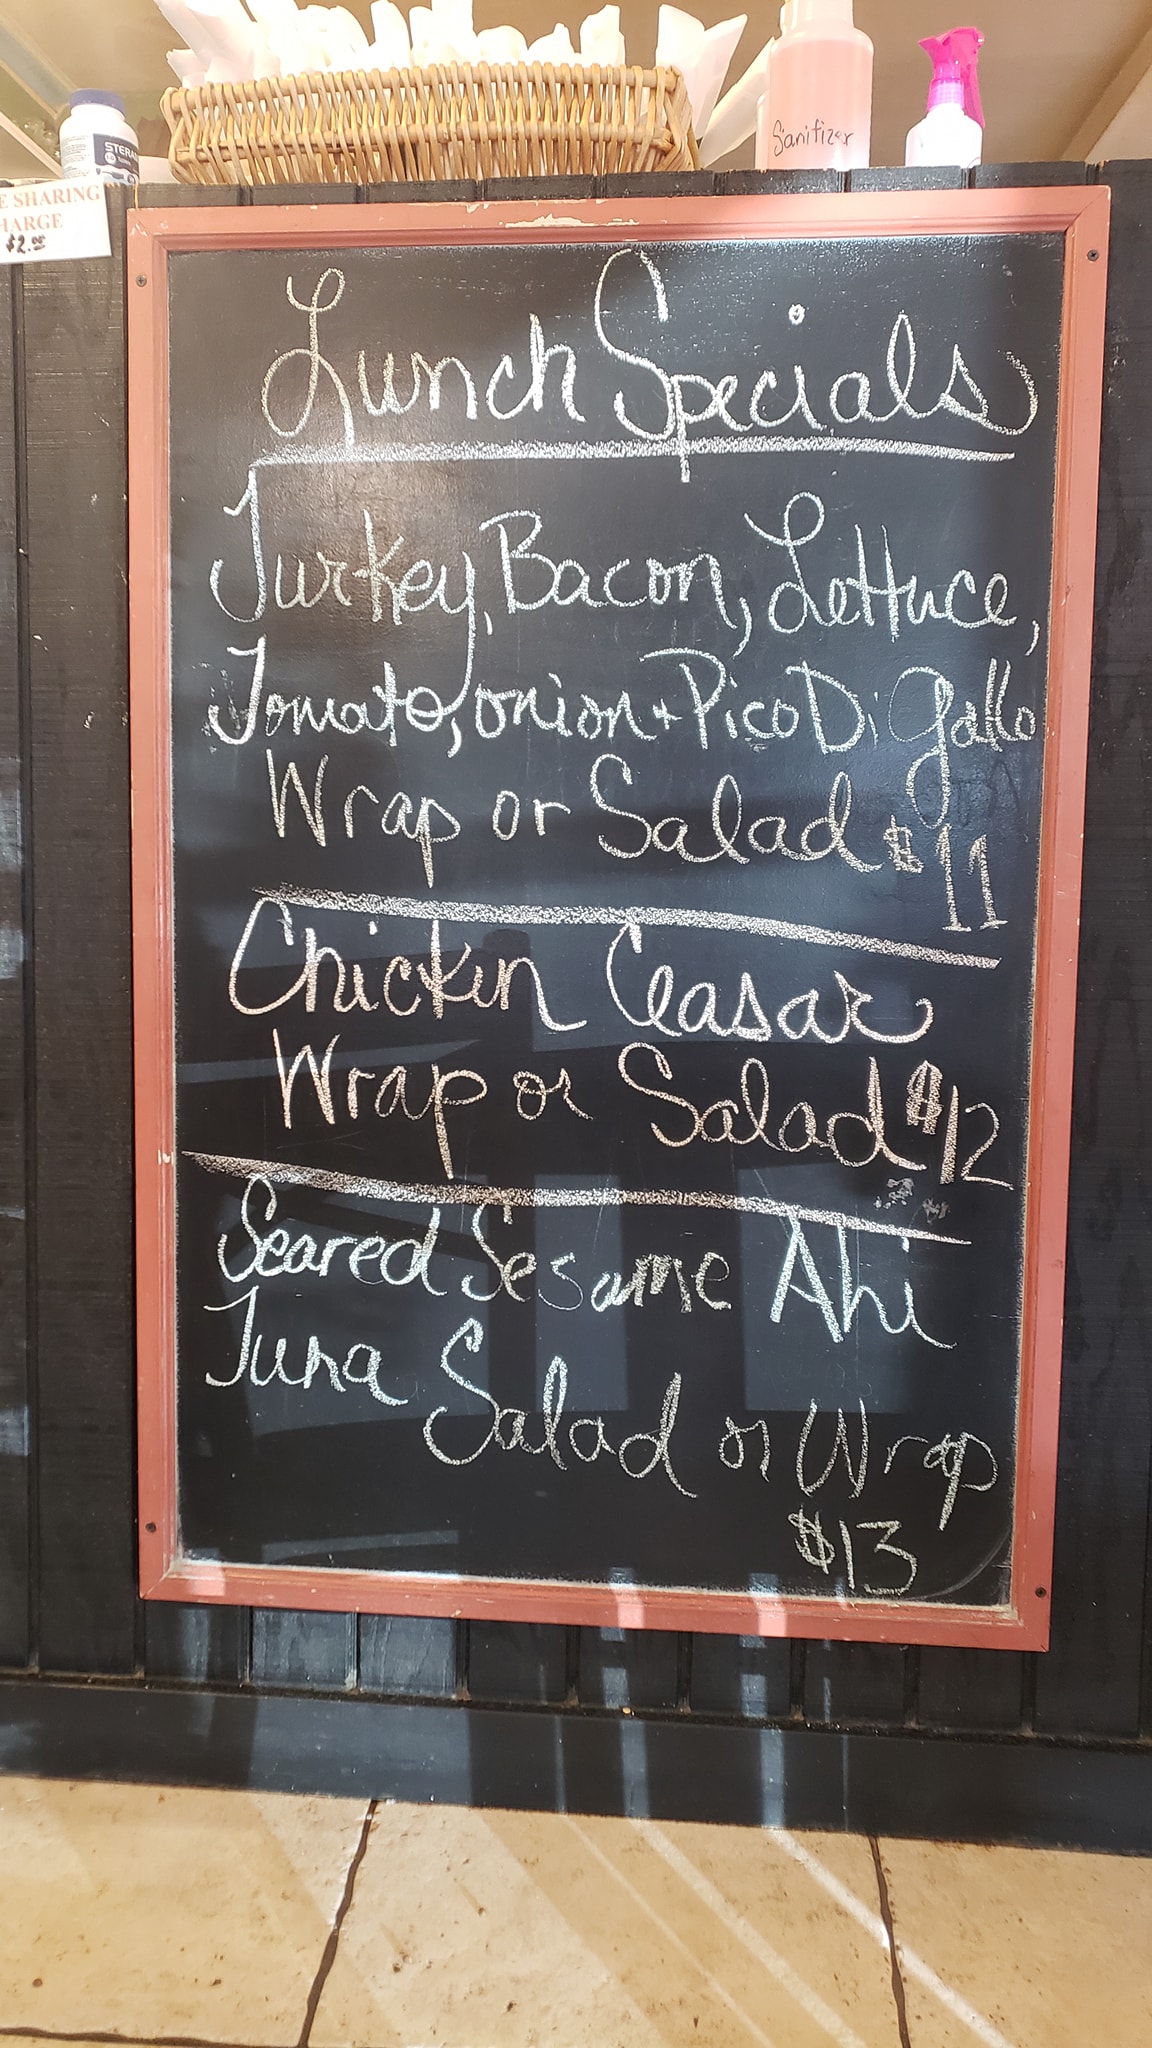 Sanitizer
STERA
E SHARING
HARGE
$2.00
Lunch Specials
Turkey, Bacon, Lettuce,
Tomato, onion + Pico Di Gallo
Wrap or Salad $11
Chicken Ceasar
Wrap or Salad $12
Seared Sesame Ahi
Tuna Salad or Wrap
$13